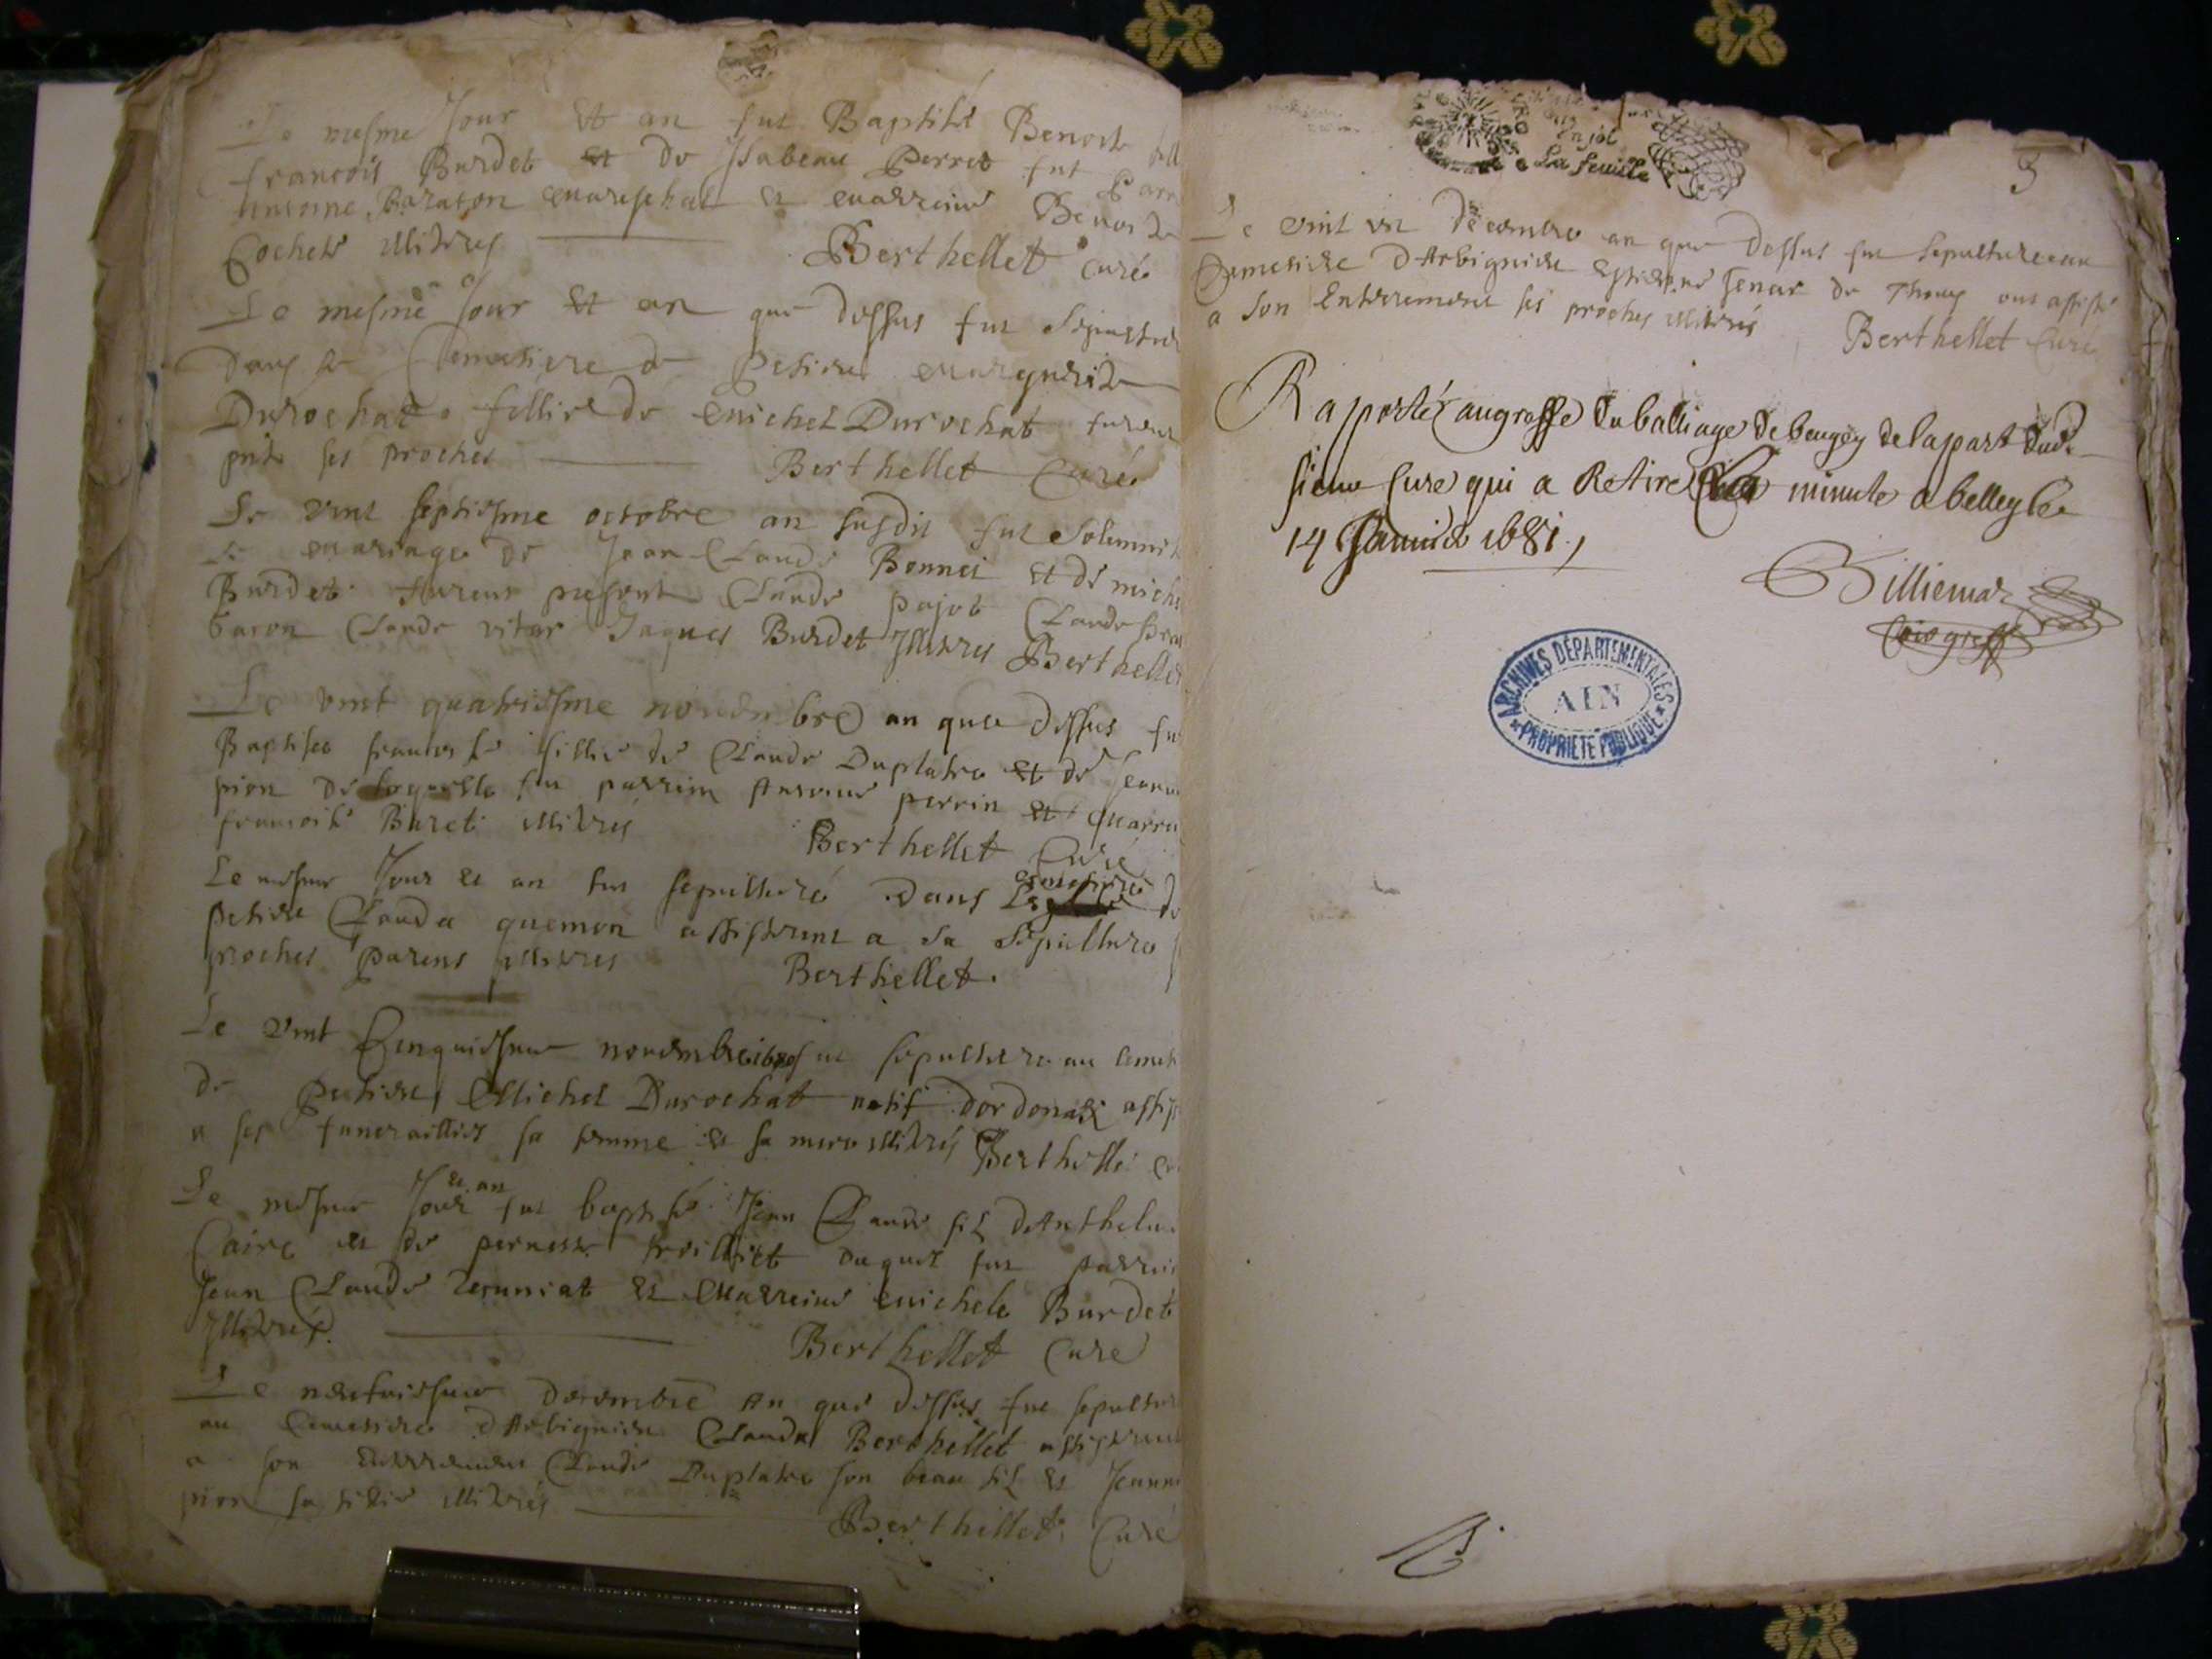 Le mesme Jour et an fut Baptisé Benoit
francois Burdet et de Isabeau Perret fut
Baraton mareschal et marreine Benoite
Cochet illitres Berthellet curé
Le mesme Jour et an que dessus fut
dans le Cemetiere de Petieu marguerite
Durochat fillie de michel Durochat furent
pnts ses proches Berthellet Curé
Le vint septiesme octobre an susdit fut Solemni
le mariage de Jean Claude Bonnet et de miche
Burdet furent present Claude pajot Claude
baron Claude Jaques Burdet Illitres Berthellet
Le vint quatriesme novembre an que dessus fu
Baptisee francoise fillie de Claude Duplatre et de Jeanne
pion de laquelle fut parrin Antoine perrin et marre
francoise Buret illitres
Berthellet Curé
Le mesme Jour et an fut sepulturé dans Le cemetiere de
Petieu Clauda quemon assisterent a sa sepulture
proches parens illitres Berthellet.
Le vint Cinquiesme novembre 1680 fut sepulturé au cemeti
de Petieu Michel Durochat natif dordonaz assis
a ses funeraillies sa femme et sa mere illitres Berthellet
Le mesme Jour et an fut baptisé Jean Claude fil d'Anthelm
Caire et de pernette trolliet duquel fut parrin
Jean Claude et Marreine michele Burdet
Illitres. Berthellet Curé
Le neufviesme decembre An que dessus fut sepultur
au Cemetiere dArbignieu Clauda Berthellet assisterent
a son Enterrement Claude Duplatre son beau fil et Jeanne
pion sa fillie illitres
Berthellet Curé
La feuille
3
Le vint un decembre an que dessus fut sepulturé au
Cemetiere dArbignieu Estienne Jenar de Thoey ont assisté
a son Enterrement ses proches illitres Berthellet Curé
Rapporté au greffe du balliage de beugey de la part dud.
sieur Curé qui a Retiré la minute a belley le
14 Janvier 1681
Billiemaz
Com greff
ARCHIVES DÉPARTEMENTALES
AIN
PROPRIÉTÉ PUBLIQUE